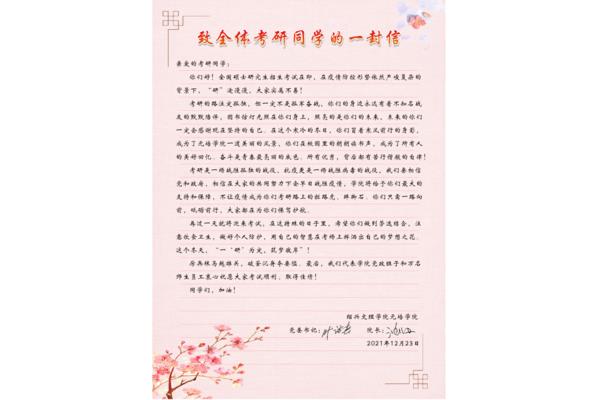 致全体考研同学的一封信
亲爱的考研同学：
你们好！全国硕士研究生招生考试在即，在疫情防控形势依然严峻复杂的
背景下，“研”途漫漫，大家实属不易！
考研的路注定孤独，但一定不是孤军奋战，你们的身边永远有着不知名战
友的默默陪伴，图书馆灯光照在你们身上，照亮的是你们的未来，未来的你们
一定会感谢现在坚持的自己。在这个寒冷的冬日，你们冒着寒风前行的身影，
成为了元培学院一道美丽的风景，你们在校园里的朗朗读书声，成为了所有人
的美好回忆。奋斗是青春最亮丽的底色，所有优秀，背后都有苦行僧般的自律！
考研是一场战胜孤独的战役，抗疫更是一场战胜病毒的战役，我们要相信
党和政府，相信在大家的共同努力下会早日战胜疫情，学院将给予你们最大的
支持和保障，不让疫情成为你们考研路上的拦路虎、绊脚石。你们只需一路向
前，砥砺前行，大家都在为你们保驾护航。
再过一天就将迎来考试，在这特殊的日子里，希望你们做到劳逸结合，注
意饮食卫生，做好个人防护，用自己的智慧在考场上挥洒出自己的梦想之花。
这个冬天，“一‘研’为定，筑梦彼岸”！
厉兵秣马越雄关，破釜沉舟奔要隘。最后，我们代表学院党政班子和万名
师生员工衷心祝愿大家考试顺利、取得佳绩！
同学们，加油！
绍兴文理学院元培学院
党委书记： 院长：
2021年12月23日